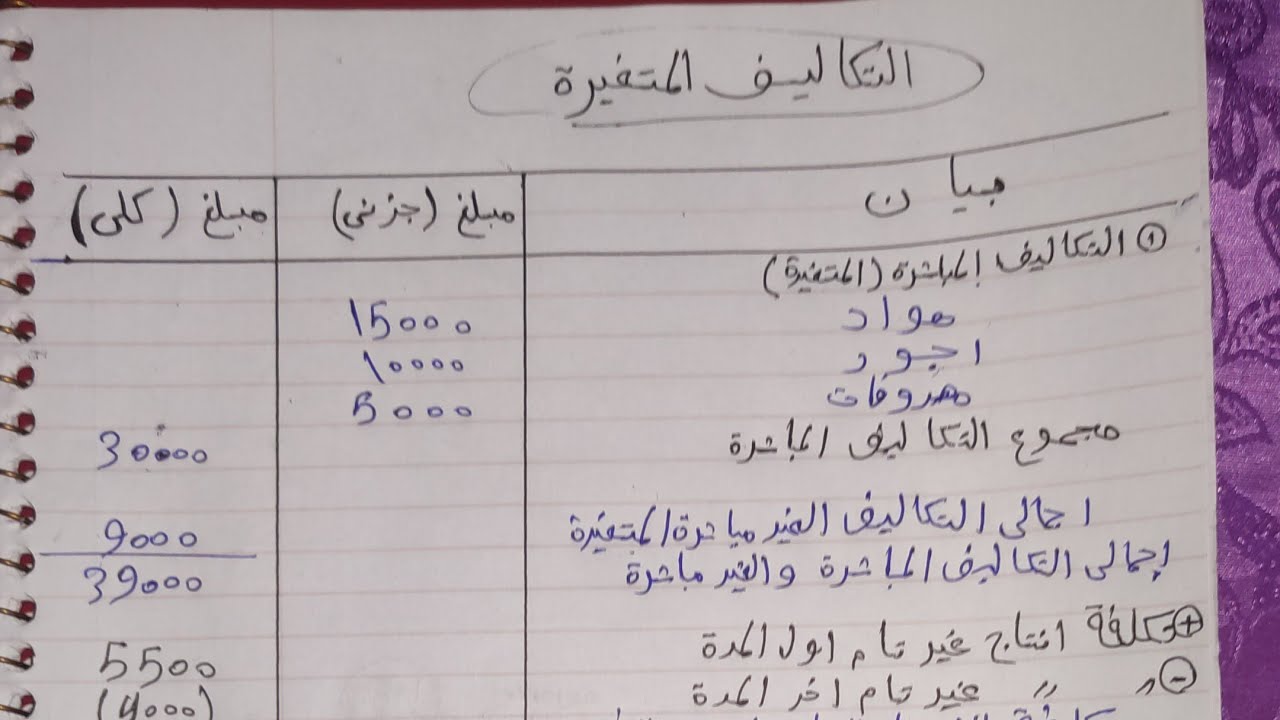 التكاليف المتغيرة
بيان مبلغ (جزئى) مبلغ (كلى)
① التكاليف المباشرة (المتغيرة)
مواد 15000
اجور 10000
مصروفات 5000
مجموع التكاليف المباشرة 30000
اجمالى التكاليف الغير مباشرة المتغيرة 9000
إجمالى التكاليف المباشرة والغير مباشرة 39000
⊕ تكلفة انتاج غير تام اول المدة 5500
⊖ " " غير تام اخر المدة (4000)